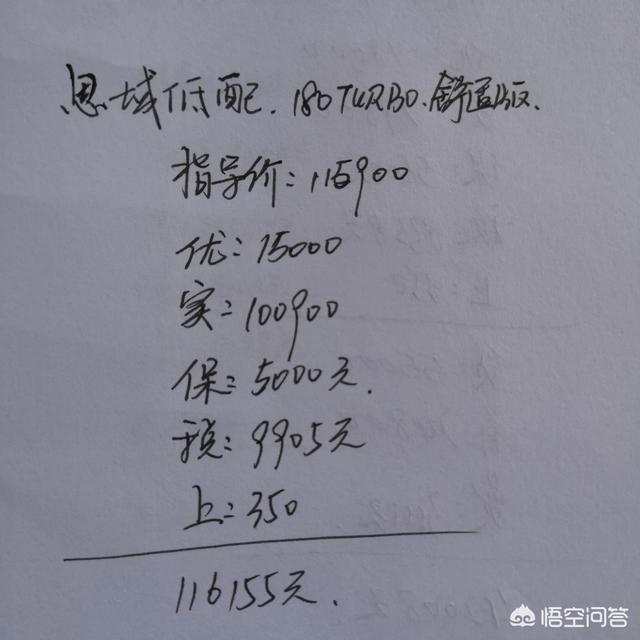 思域低配.180TURBO.舒适版.
指导价:115900
优:15000
实:100900
保:5000元.
税:9905元
上:350
116155元.
悟空问答